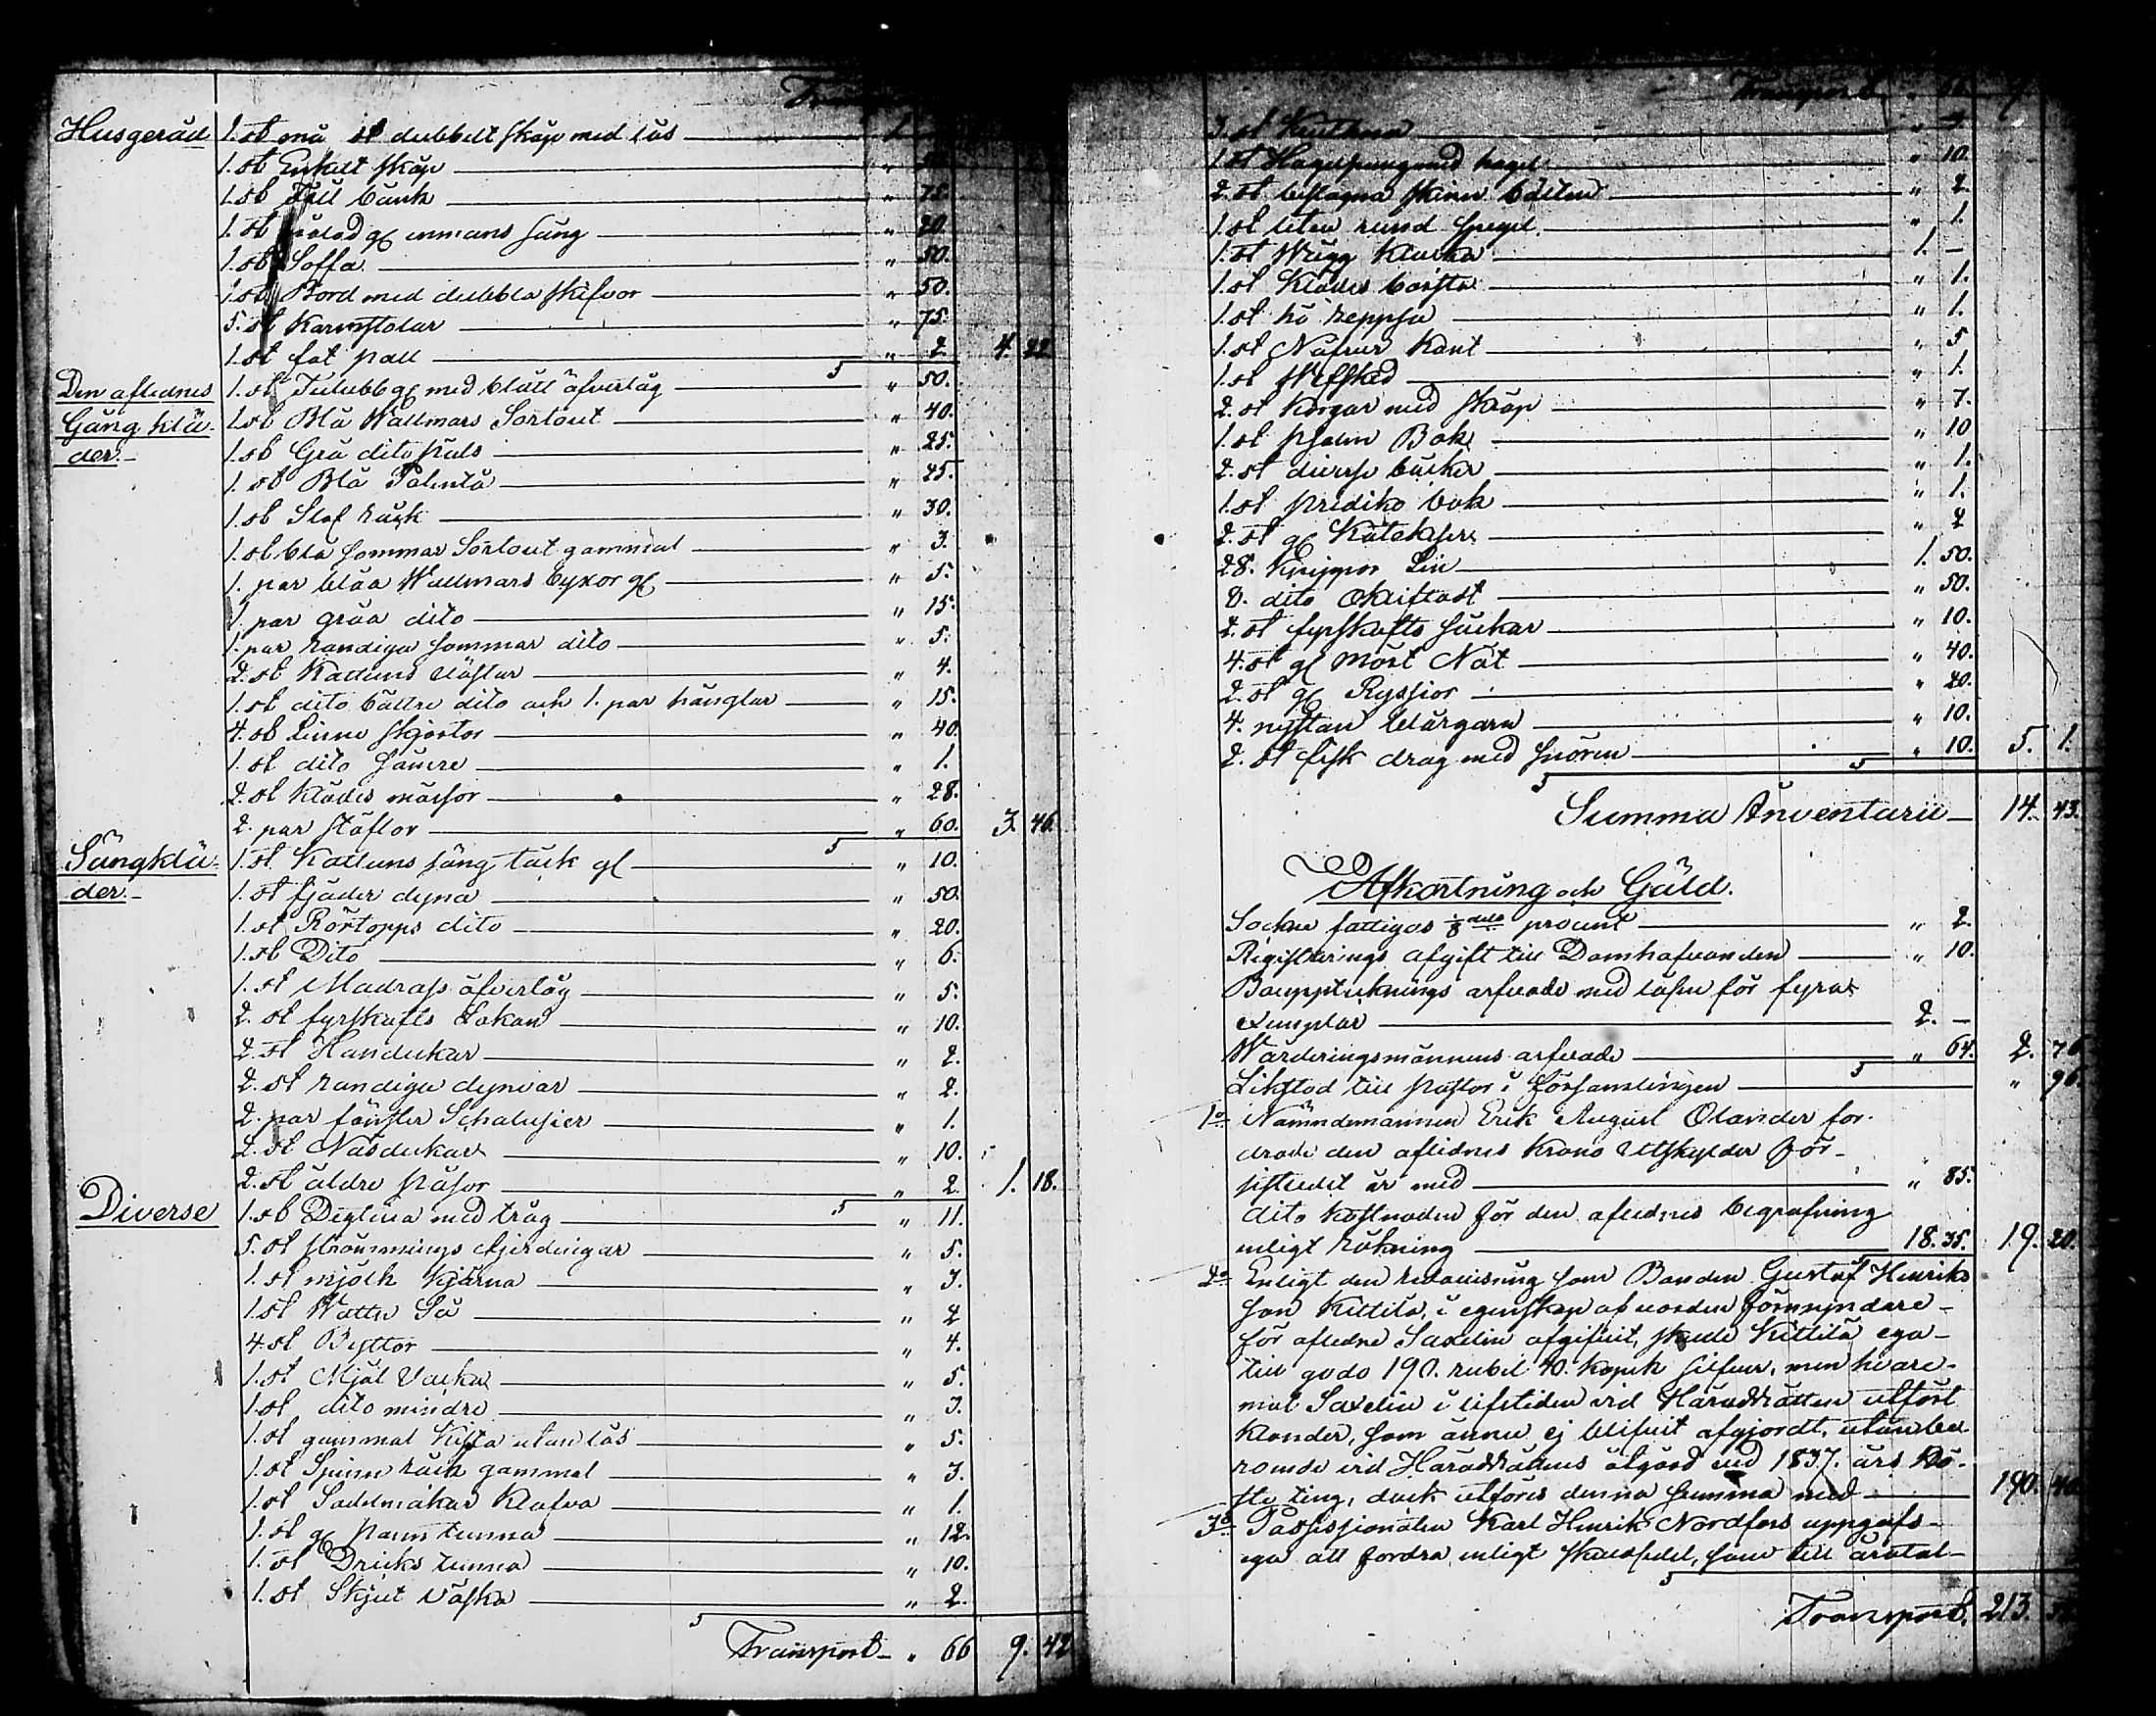 Husgeråd 1. st må st dubbelt skåp med lås 1.
1. st Enkelt skåp "
1. st Fäll bänk " 75.
1. st målad gl enmans säng " 20.
1. st Soffa " 50.
1. st Bord med dubbla skifvor " 50.
5. st Karmstolar " 75.
1. st fot pall " 2. 4. 22
Den aflednes 1. st Tulubb gl med blått öfverlåg " 50.
Gång klä- 1. st Blå Wallmars Sortout " 40.
der.- 1. st Grå dito päls " 25.
1. st Blå Palentå " 25.
1. st Slof råck " 30.
1. st blå sommar Sortout gammal " 3.
1. par blåa Wallmars byxor gl " 5.
1. par gråa dito " 15.
1. par randiga sommar dito " 5.
2. st Kattuns västar " 4.
1. st dito bättre dito och 1. par hänglar " 15.
4. st Linne skjortor " 40.
1. st dito sämre " 1.
2. st Klädes mössor " 28.
2. par stöflor " 60. 3. 46.
Sängklä- 1. st Kattuns säng täck gl " 10.
der.- 1. st fjäder dyna " 50.
1. st Rörtopps dito " 20.
1. st Dito " 6.
1. st Madrass öfverlåg " 5.
2. st fyrskafts Lakan " 10.
2. st Handukar " 2.
2. st randiga dynvar " 2.
2. par fönster Schalusier " 1.
2. st Näsdukar " 10.
2. st äldre påsor " 2. 1. 18.
Diverse 1. st Degtina med tråg " 11.
5. st strömmings fjerdingar " 5.
1. st mjölk Kjärna " 3.
1. st Watten Så " 2
4. st Byttor " 4.
1. st Mjöl Vacka " 5.
1. st dito mindre " 3.
1. st gammal Kista utan lås " 5.
1. st Spinn råck gammal " 3.
1. st Sadelmakar Klafva " 1.
1. st gl pann tunna " 12.
1. st Dricks tunna " 10.
1. st Skjut Väska " 2.
Transport " 66 9. 42
Transport " 66 9.
3. st "
1. st Hagelpung med hagel " 10.
2. st beslagna skinn bälten " 2.
1. st liten rund spegel " 1.
1. st Wägg Klocka 1. –
1. st Klädes borste " 1.
1. st hö reppsa " 1.
1. st Näfvar Kont " 5
1. st Wefsked " 1.
2. st Korgar med skråp " 7.
1. st psalm Bok " 10
2. st diverse böcker " 1.
1. st prediko bok " 1.
2. st gl Katekeser " 2
28. Knippor Lin 1. 50.
8. dito Okliftadt " 50.
2. st fyrskafts säckar " 10.
4. st gl Mört Nät " 40.
2. st gl Ryssior " 20.
4. nystan blårgarn " 10.
2. st fisk drag med snören " 10. 5. 1.
Summa Inventarii 14. 43.
Afkortning och Gäld.
Sockne fattigas 1/8 dels procent " 2.
Registrerings afgift till Domhafvanden " 10.
Bouppteknings arfvode med lösen för fyra
exemplar 2. –
Wärderingsmännens arfvode " 64. 2. 76
Likstod till pastor i församlingen " 96.
1o Nämndemannen Erik August Olander for-
drade den aflednes Krono Utskylder för
sistledet år med " 85.
dito kostnaden för den aflednes begrafning
enligt räkning 18. 35. 19. 20.
2o Enligt den redovisning som Bonden Gustaf Henriks
son Kittilä, i egenskap af varden förmyndare
för afledne Saxelin afgifvit, skulle Kittilä ega
till godo 190. rubel 40. kopek silfver, men hvare-
mot Saxelin i lifstiden vid Häradsrätten utfört
klander, som ännu ej blifvit afgjordt, utan be-
roende vid Häradsrättens åtgärd vid 1837. års Hö-
ste ting, dock utföres denna summa med 190. 40
3o Possessionaten Karl Henrik Nordfors uppgafs
ega att fordra enligt skuldsedel, som till åratal
Transport. 213.